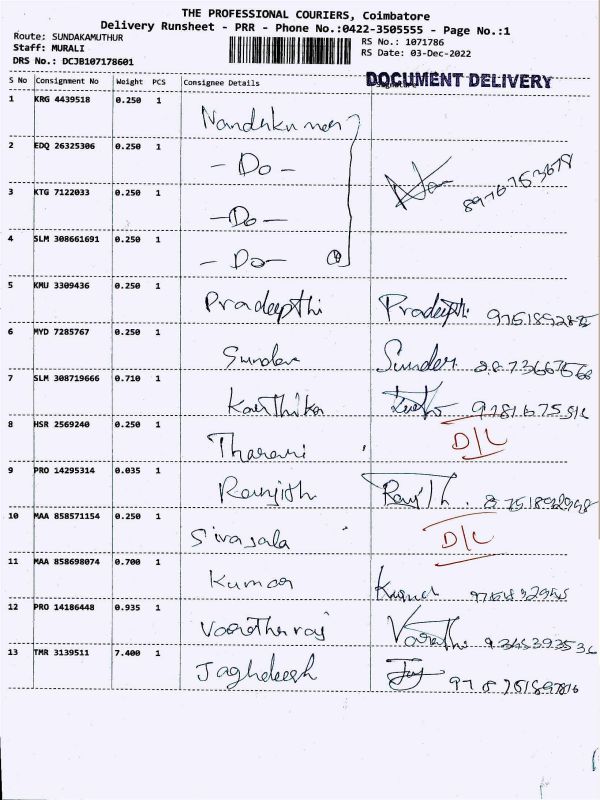 THE PROFESSIONAL COURIERS, Coimbatore
Delivery Runsheet - PRR - Phone No.:0422-3505555 - Page No.:1
Route: SUNDAKAMUTHUR
RS No.: 1071786
Staff: MURALI
RS Date: 03-Dec-2022
DRS No.: DCJB107178601
DOCUMENT DELIVERY
S No Consignment No Weight PCS Consignee Details
1 KRG 4439518 0.250 1 Nandakumar
2 EDQ 26325306 0.250 1 - Do -
3 KTG 7122033 0.250 1 - Do -
4 SLM 308661691 0.250 1 - Do - (4)
5 KMU 3309436 0.250 1 Pradeepthi Pradeepthi
6 MYD 7285767 0.250 1 Sundar Sunder
7 SLM 308719666 0.710 1 Karthika
8 HSR 2569240 0.250 1 Tharani D/L
9 PRO 14295314 0.035 1 Ranjith
10 MAA 858571154 0.250 1 Sivasala D/L
11 MAA 858698074 0.700 1 Kumar
12 PRO 14186448 0.935 1 Varatharaj
13 TMR 3139511 7.400 1 Jaghdeesh